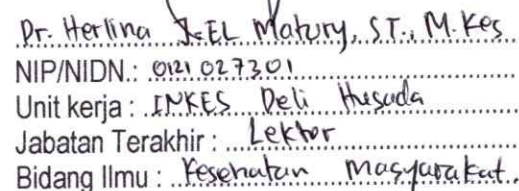 Dr. Herlina J. EL Matury, ST., M.Kes
NIP/NIDN.: 0121027301
Unit kerja : INKES Deli Husada
Jabatan Terakhir : Lektor
Bidang Ilmu : Kesehatan Masyarakat.